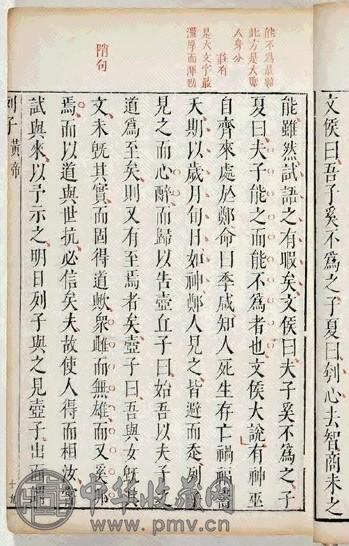 文侯曰吾子奚不為之子夏曰刳心去智商未之
能不為最難
此方是大聖
人身分
莊有
是大文字最
陗句
能雖然試語之有暇矣文侯曰夫子奚不為之子
夏曰夫子能之而能不為者也文侯大說有神巫
自齊來處於鄭命曰季咸知人死生存亡禍福壽
夭期以歲月旬日如神鄭人見之皆避而走列子
見之而心醉而歸以告壺丘子曰始吾以夫子之
道為至矣則又有至焉者矣壺子曰吾與女旣其
文未旣其實而固得道歟衆雌而無雄而又奚卵
焉而以道與世抗必信矣夫故使人得而相汝嘗
試與來以予示之明日列子與之見壺子出而謂
列子 黃帝
中华收藏网
www.pmv.cn